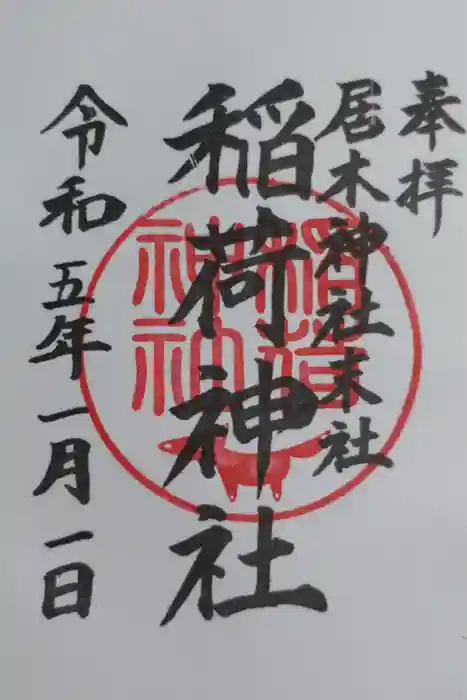 奉拝
居木神社末社
稲荷神社
令和五年一月一日
稲荷
神社